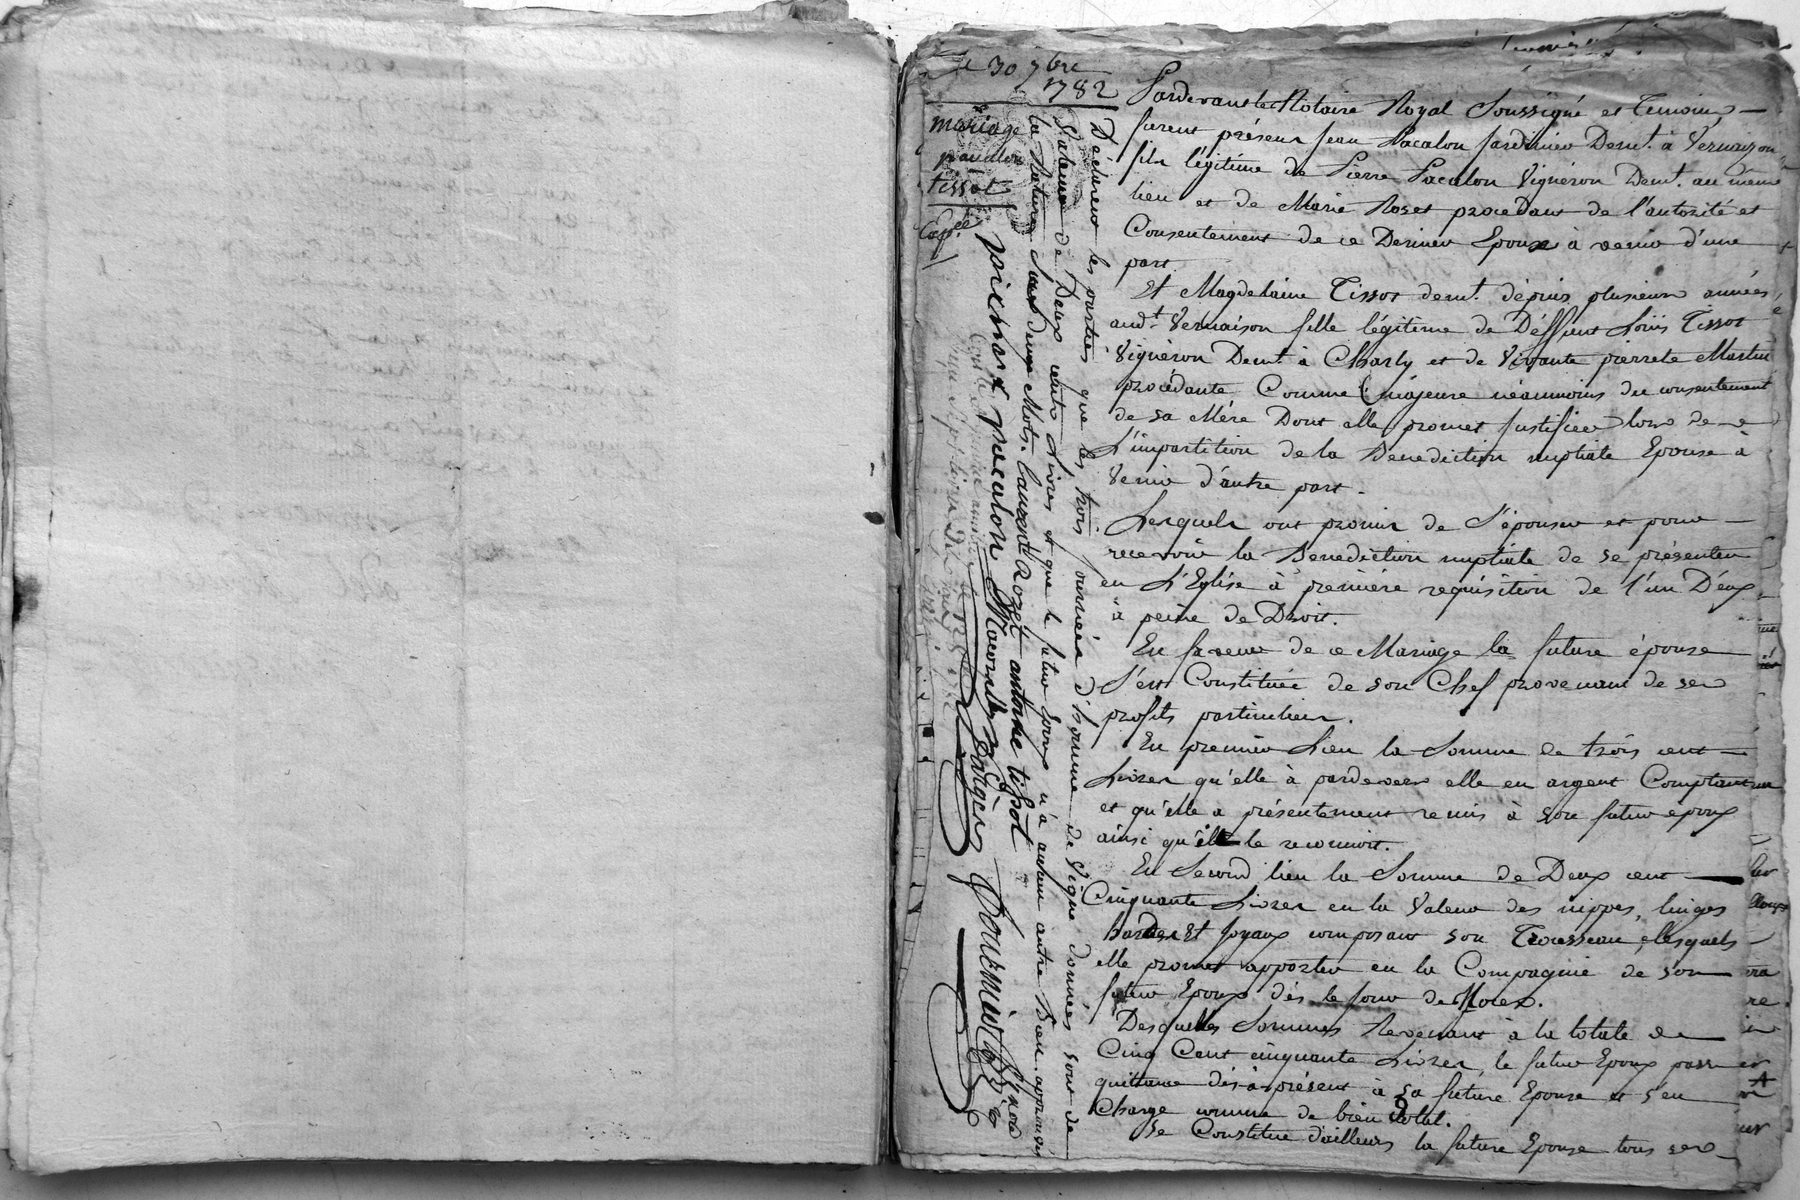 Le 30 7bre
1782
mariage
pacalon
tissot
Exp.ée
Pardevant le Notaire Royal Soussigné et Temoins
furent présens Jean Pacalon Jardinier Demt. à Vernaizon
fils légitime de Pierre Pacalon Vignéron Demt. au même
lieu et de Marie Rozet procedant de l'autorité et
Consentement de ce Dernier Epoux à venir d'une
part.
Et Magdelaine Tissot demt. dépuis plusieurs années
audt. Vernaison fille légitime de Déffunt Loüis Tissot
Vignéron Demt à Charly et de Vivante pierrete Martin
procédante Comme majeure néanmoins du consentement
de sa Mére Dont elle promet justifier lors de
L'impartition de la Benediction nuptiale Epouse à
Venir d'autre part.
Lesquels ont promis de S'épouser et pour
recevoir la Benediction nuptiale de se présenter
en L'Eglise à premiére requisition de l'un D'eux
à peine de Droit.
En faveur de ce Mariage la future épouse
S'est Constituée de son Chef provenant de ses
profits particuliers.
En premier Lieu la Somme de trois cent
Livres qu'elle à pardevers elle en argent Comptant
et qu'elle a présentement remis à son futur epoux
ainsi qu'il le reconnoit.
En Second lieu la Somme de Deux cent
Cinquante Livres en la Valeur des nippes, linges
hardes Et Joyaux composant son Trousseau, lesquels
elle promet apporter en la Compagnie de son
futur Epoux dés le jour de Noces.
Desquelles Sommes Revenant à la totale de
Cinq Cent cinquante Livres, le futur Epoux passe
quittance dés-à-présent à sa future Epouse et s'en
Charge comme de bien Dotal.
Se Constitue d'ailleurs la future Epouse tous ses
Déclarent les parties que les trois journées d'homme de Vigne données sont de
Valeur de Deux cents Livres et que le futur Epoux n'à aucun autre Bien. approuvés
la Nature deux Mots. laurent rozet antoine tissot
pierre pacalon